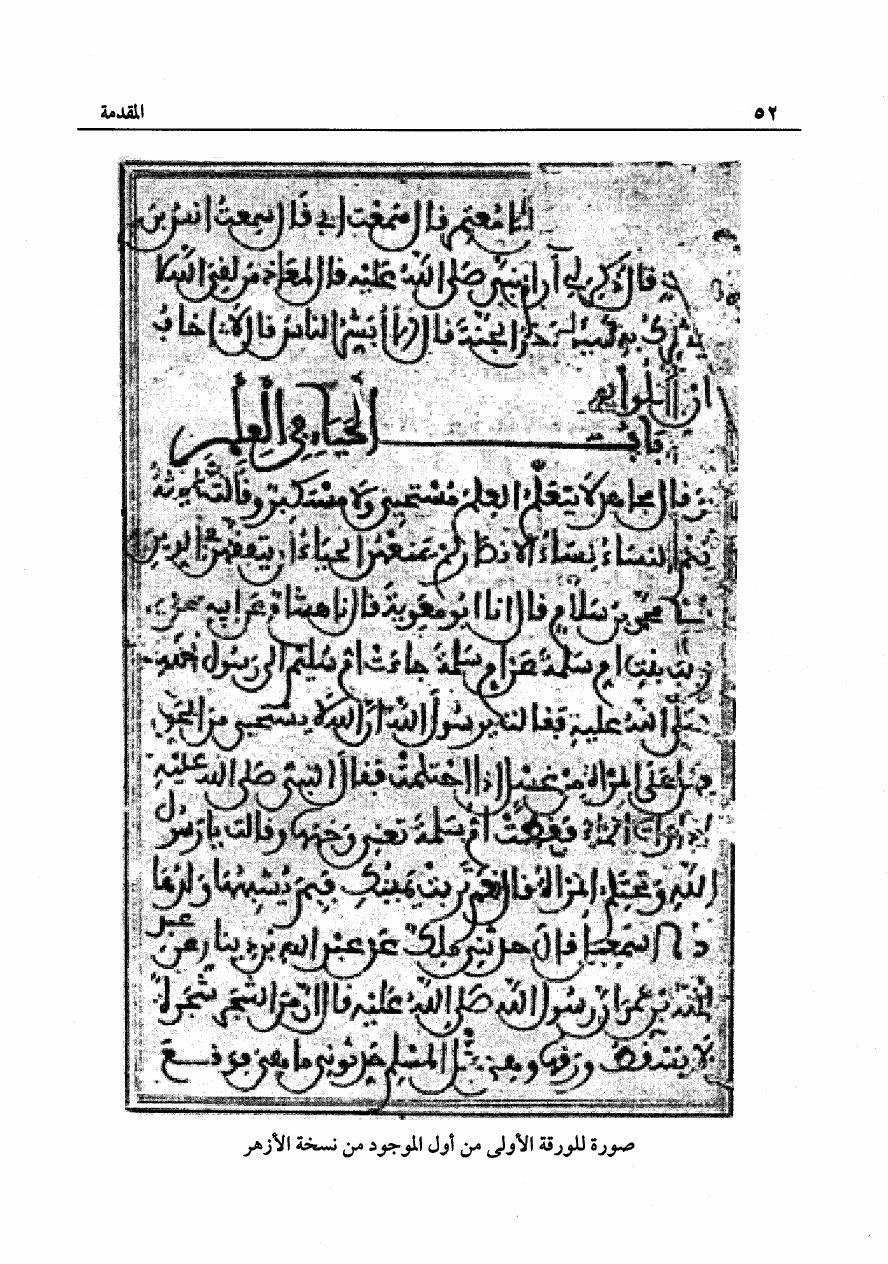 ٥٢
المقدمة
نا معتمر قال سمعت ابي قال سمعت انس بن
قال ذكر لي ان النبي صلى الله عليه قال لمعاذ من لقي الله لا
يشرك به شيئا دخل الجنة قال الا ابشر الناس قال لا اخاف
ان يتكلوا
باب الحياء في العلم
وقال مجاهد لا يتعلم العلم مستحيي ولا مستكبر وقالت عائشة
نعم النساء نساء الانصار لم يمنعهن الحياء ان يتفقهن في الدين
محمد بن سلام قال انا ابو معوية قال نا هشام عن ابيه عن
زينب بنت ام سلمة عن ام سلمة جاءت ام سليم الى رسول الله
صلى الله عليه فقالت يرسول الله ان الله لا يستحيي من الحق
فهل على المراة من غسل اذا احتلمت فقال النبي صلى الله عليه
اذا رات الماء فغطت ام سلمة تعني وجهها وقالت يا رسول
الله وتحتلم المراة قال نعم تربت يمينك فبم يشبهها ولدها
نا اسمعيل قال حدثني ملك عن عبد الله بن دينار عن عبد
الله بن عمر ان رسول الله صلى الله عليه قال ان من الشجر شجرة
لا يسقط ورقها وهي مثل المسلم حدثوني ما هي فوقع
صورة للورقة الأولى من أول الموجود من نسخة الأزهر